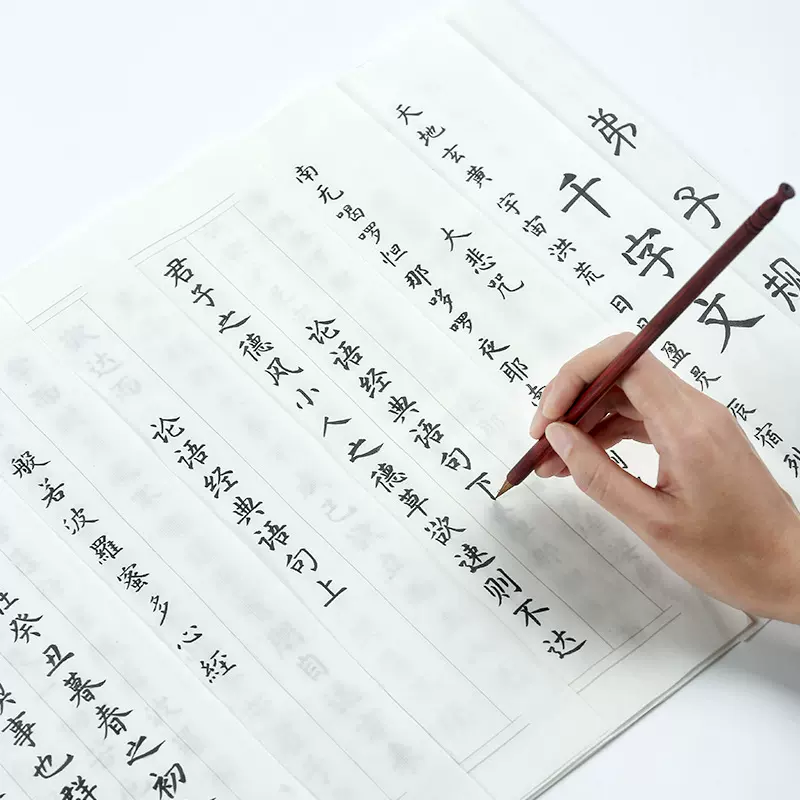 弟子规
千字文
天地玄黄宇宙洪荒日月盈昃辰宿列
大悲咒
南无喝啰怛那哆啰夜耶南
论语经典语句下
君子之德风小人之德草欲速则不达
论语经典语句上
般若波羅蜜多心經
在癸丑暮春之初
事也群